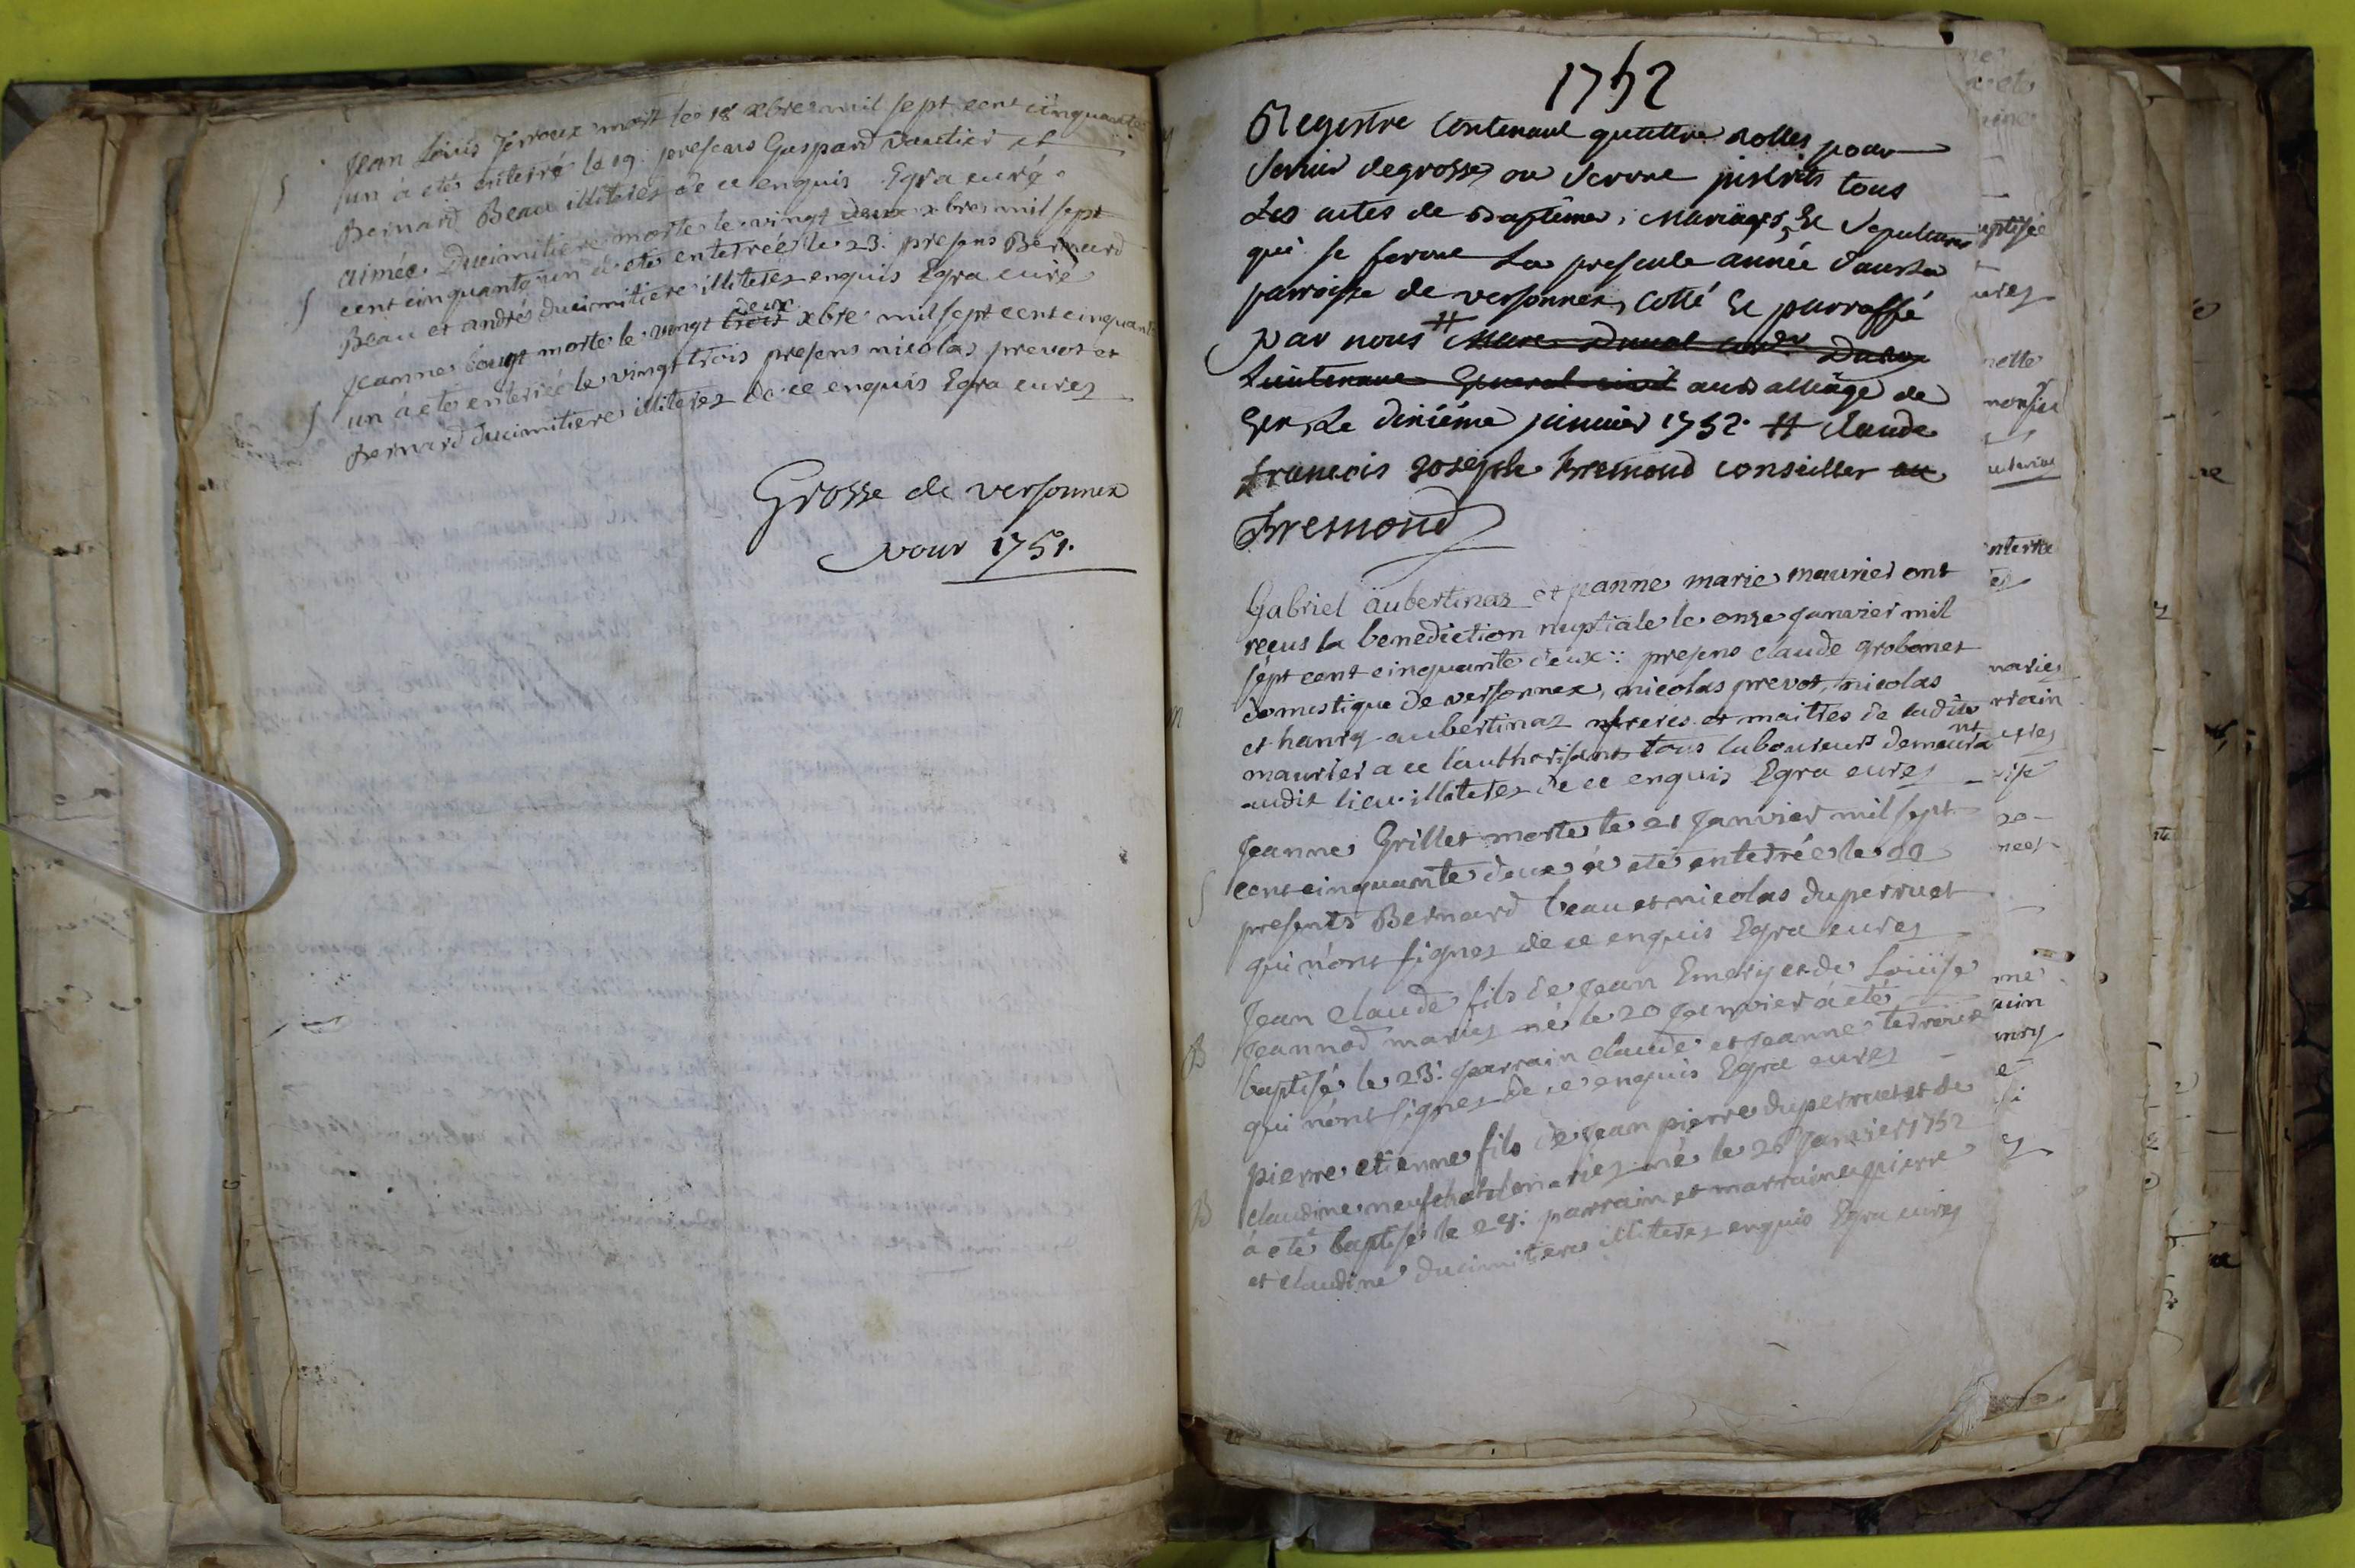 Jean Louis Terroux mort le 18 xbre mil sept cent cinquante
S un à eté enterré le 19. presens Gaspard vautier et
Bernard Beau illiterés de ce enquis Egra curé
aimée Ducimitiere morte le vingt deux xbre mil sept
S cent cinquante un à eté enterrée le 23. presens Bernard
Beau et andrés ducimitiere illiterés enquis Egra curé
deux
Jeanne morte le vingt trois xbre mil sept cent cinquante
S un à eté enterrée le vingt trois presens nicolas prevot et
Bernard ducimitiere illiterez de ce enquis Egra curez
Grosse de versonnex
pour 1751.
1752
Registre Contenant quattre rolles pour
servir de grosse, ou seront inscrits tous
Les actes de Baptême, Mariages, Et Sepultures
qui se feront La presente année dans La
parroisse de versonnex, Cotté Et parraffé
par nous # Marc Duval
Lieutenant General civil au Balliage de
Gex, Le dixiéme janvier 1752. # Claude
francois Joseph fremond conseiller au
fremond
Gabriel aubertinaz et jeanne marie maurier ont
reçus la benediction nuptiale le onze janvier mil
sept cent cinquante deux: presens claude grobonet
m domestique de versonnex, nicolas prevot, nicolas
et hanry aubertinaz freres et maitres de ladite
maurier a ce l'authorisant tous laboureurs demeurant
audit lieu illiterez de ce enquis Egra curez
Jeanne Grillet morte le 21 Janvier mil sept
S cent cinquante deux à eté enterrée le 22
presents Bernard beau et nicolas duperruet
qui n'ont signez de ce enquis Egra curez
Jean Claude fils de Jean Emery et de Loüise
Jeannod mariez né le 20 Janvier à eté
B baptisé le 23. parrain claude et jeanne terroux
qui n'ont signez de ce enquis Egra curez
pierre etienne fils de Jean pierre duperruet et de
B claudine mariez né le 26 Janvier 1752
à eté baptisé le 27. parrain et marraine pierre
et claudine ducimitiere illiterez enquis Egra curez